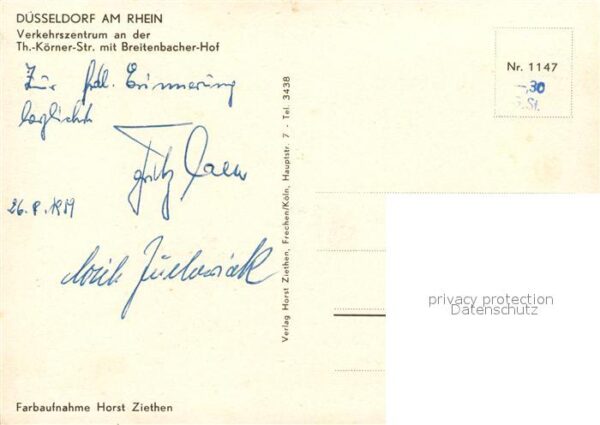 DÜSSELDORF AM RHEIN
Verkehrszentrum an der
Th.-Körner-Str. mit Breitenbacher-Hof
Zur frdl. Erinnerung
Fritz
26.8.1959
Verlag Horst Ziethen, Frechen/Köln, Hauptstr. 7 · Tel. 3438
Nr. 1147
-,30
privacy protection
Datenschutz
Farbaufnahme Horst Ziethen